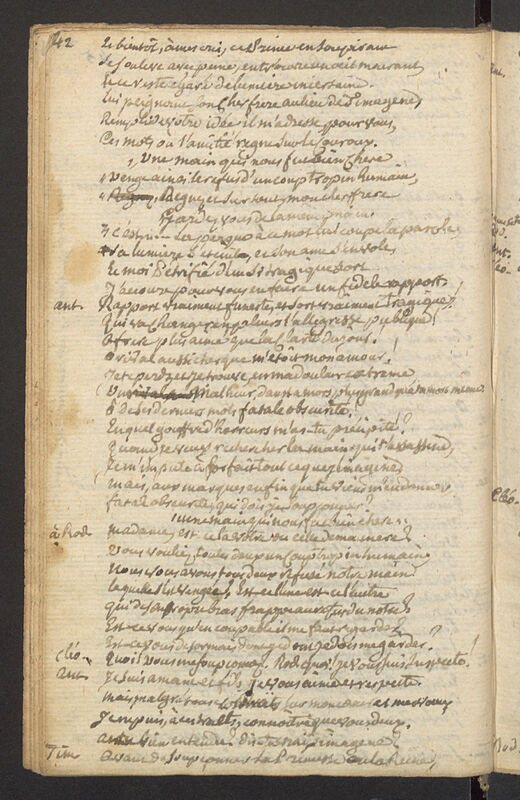 42
Et bientôt, à mes cris, ce Prince en soupirant
Se souleve avec peine, entr'ouvre un oeil mourant,
Et ce reste égaré de lumiere incertaine
Lui peignant son cher frere au lieu de Timagene,
Rempli de votre idée il m'adresse pour vous,
Ces mots où l'amitié regne sur le couroux.
" Une main qui nous fut bien chere
" Venge ainsi le refus d'un coup trop inhumain,
" Regnez, Regnez et sur tout, mon cher frere
Gardez vous de la meme main.
" c'est La parque à ce mot lui coupe la parole
Sa lumiere s'eteint, et son ame s'envole
Et moi d'un si tragique sort
J'accours pour vous en faire un fidele rapport.
ant. Rapport vraiment funeste, et sort vraiment tragique!
Qui va changer en pleurs l'allegresse publique!
O frere plus aimé que la clarté du jour!
O rival aussi cher que m'etoit mon amour!
Je te perds, et je trouve en ma douleur extreme
Un malheur, dans ta mort, plus grand que ta mort meme.
O de ses derniers mots fatale obscurité
En quel gouffre d'horreurs m'as-tu précipité?
Quand je veux rechercher la main qui l'assassine,
Je m'impute à forfait tout ce que j'imagine
mais, aux marques enfin que tu viens m'en donner
fatale obscurité, qui dois je en soupçonner?
" une main qui nous fut bien chere "
à Rod. madame, est ce la votre ou celle de ma mere?
Vous vouliez, toutes deux un coup trop inhumain
Nous vous avons tous deux refusé notre main
laquelle s'est vengée? Est-ce l'une est ce l'autre
qui de sa propre bras frappe au refus du notre?
Est-ce vous qu'en coupable il me faut regarder?
Est-ce vous desormais dont je dois me garder?
Cléo. Quoi! vous me soupçonnez! Rod. quoi! je vous suis suspecte!
ant. Je suis amant et fils je vous aime et respecte
mais malgré sur mon coeur et mes voeux
Je ne puis, à ces traits, connoître que vous deux.
as-tu bien entendu? dis tu vrai, Timagene?
Tim avant de soupçonner la Princesse ou la Reine,